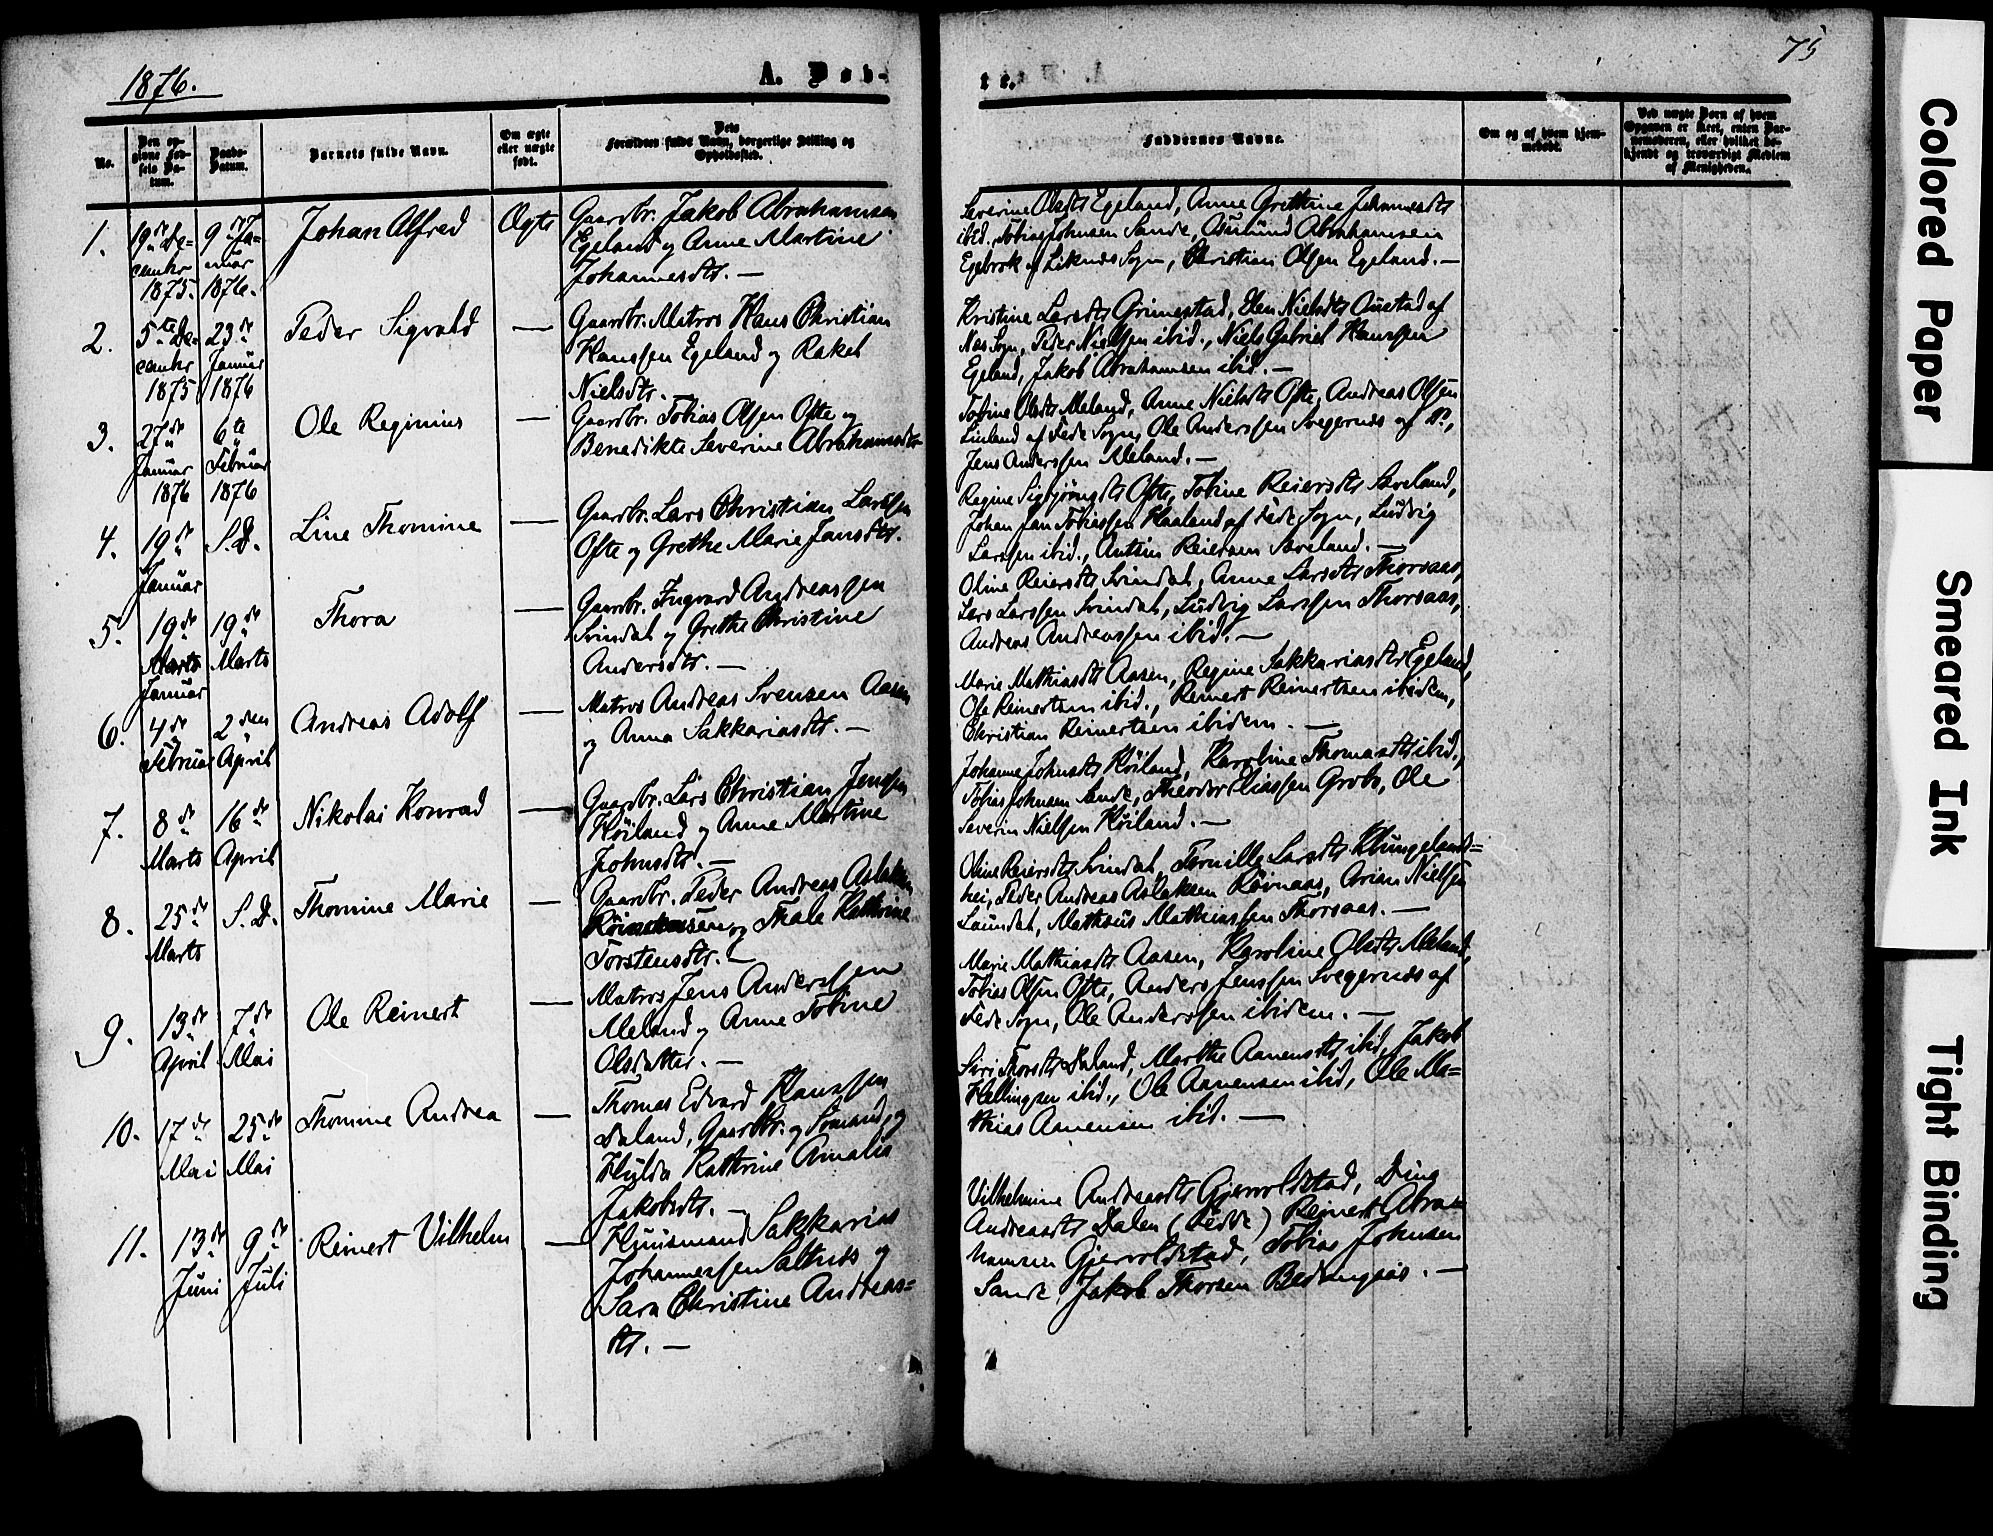 1876.
A. Døb-
te.
75
No.
Den op-
givne Fød-
sels Da-
tum.
Daabs-
Datum.
Barnets fulde Navn.
Om ægte
eller uægte
født.
Dets
Forældres fulde Navn, borgerlige Stilling og
Opholdssted.
Faddernes Navne.
Om og af hvem hjem-
medøbt.
Ved uægte Børn af hvem
Opgaven er skeet, enten Jor-
demoderen, eller hvilket be-
kjendt og troværdigt Medlem
af Menigheden.
1.
19de De-
cembr
1875.
9de Ja-
nuar
1876.
Johan Alfred
Ægte
Gaardbr. Jakob Abrahamsen
Egeland og Anne Martine
Johannesdtr. —
Severine Olsdtr Egeland, Anne Grethine Johannesdtr
ibid., Tobias Johnsen Sande, Asmund Abrahamsen
Egebrok af Liknes Sogn, Christian Olsen Egeland. —
2.
5te De-
cembr
1875
23de
Januar
1876
Peder Sigvald
—
Gaardbr. Matros Hans Christian
Hanssen Egeland og Rakel
Nielsdtr.
Kristine Larsdtr Grimestad, Elen Nielsdtr Austad af
Næs Sogn, Peder Nielsen ibid., Niels Gabriel Hanssen
Egeland, Jakob Abrahamsen ibid. —
3.
27de
Januar
1876
6te
Februar
1876
Ole Reginius
—
Gaardbr. Tobias Olsen Ofte og
Benedikte Severine Abrahamsdtr
Tobine Olsdtr Meland, Anne Nielsdtr Ofte, Andreas Olsen
Linland af Fede Sogn, Ole Anderssen Svegernes af Do.,
Jens Anderssen Meland. —
4.
19de
Januar
S.D.
Line Thomine
—
Gaardbr. Lars Christian Larssen
Ofte og Grethe Marie Jansdtr.
Regine Sigbjørnsdtr Ofte, Tobine Reiersdtr Sæveland,
Johan Jan Tobiassen Haaland af Fede Sogn, Ludvig
Larssen ibid., Antoni Reiersen Sæveland. —
5.
19de
Marts
Januar
19de
Marts
Thora
—
Gaardbr. Ingvard Andreassen
Svindal og Grethe Christine
Andersdtr. —
Oline Reiersdtr Svindal, Anne Larsdtr Thorsaas,
Lars Larssen Svindal, Ludvig Larssen Thorsaas,
Andreas Andreassen ibid. —
6.
4de
Februar
2den
April
Andreas Adolf
—
Matros Andreas Svensen Aasen
og Anna Sakkariasdtr. —
Marie Mathiasdtr Aasen, Regine Sakkariasdtr Egeland,
Ole Reinertsen ibid., Reinert Reinertsen ibidem,
Christian Reinertsen ibidem. —
7.
8de
Marts
16de
April
Nikolai Konrad
—
Gaardbr. Lars Christian Jenssen
Høiland og Anne Martine
Johnsdtr. —
Johanne Johnsdtr Høiland, Karoline Thomasdtr ibid.,
Tobias Johnsen Sande, Theodor Eliassen Grobs, Ole
Severin Nielsen Høiland. —
8.
25de
Marts
S.D.
Thomine Marie
—
Gaardbr. Peder Andreas Aslaksen
og Thale Kathrine
Torstensdtr. —
Oline Reiersdtr Svindal, Pernille Larsdtr Klungelands=
hei, Peder Andreas Aslaksen Røvnaas, Arian Nielsen
Laundal, Mathæus Mathiassen Thorsaas. —
9.
13de
April
7de
Mai
Ole Reinert
—
Matros Jens Anderssen
Meland og Anne Tobine
Olsdatter. —
Marie Mathiasdtr Aasen, Karoline Olsdtr Meland,
Tobias Olsen Ofte, Anders Jenssen Svegernæs af
Fede Sogn, Ole Anderssen ibidem. —
10.
17de
Mai
25de
Mai
Thomine Andrea
—
Thomas Edvard Hanssen
Daland, Gaardbr. og Sømand, og
Hulda Kathrine Amalia
Jakobsdtr. —
Siri Thorsdtr Daland, Marthe Aanensdtr ibid, Jakob
Hellingsen ibid., Ole Aanensen ibid, Ole Ma=
thias Aanensen ibid. —
11.
13de
Juni
9de
Juli
Reinert Vilhelm
—
Huusmand Sakkarias
Johannessen Saltnes og
Sara Christine Andreas=
dtr. —
Vilhelmine Andreasdtr Gjervoldstad, Dina
Andreasdtr Dalen (Fedde) Reinert Abra=
hamsen Gjervoldstad, Tobias Johnsen
Sande, Jakob Thorsen Bedringsaas. —
Colored Paper
Smeared Ink
Tight Binding